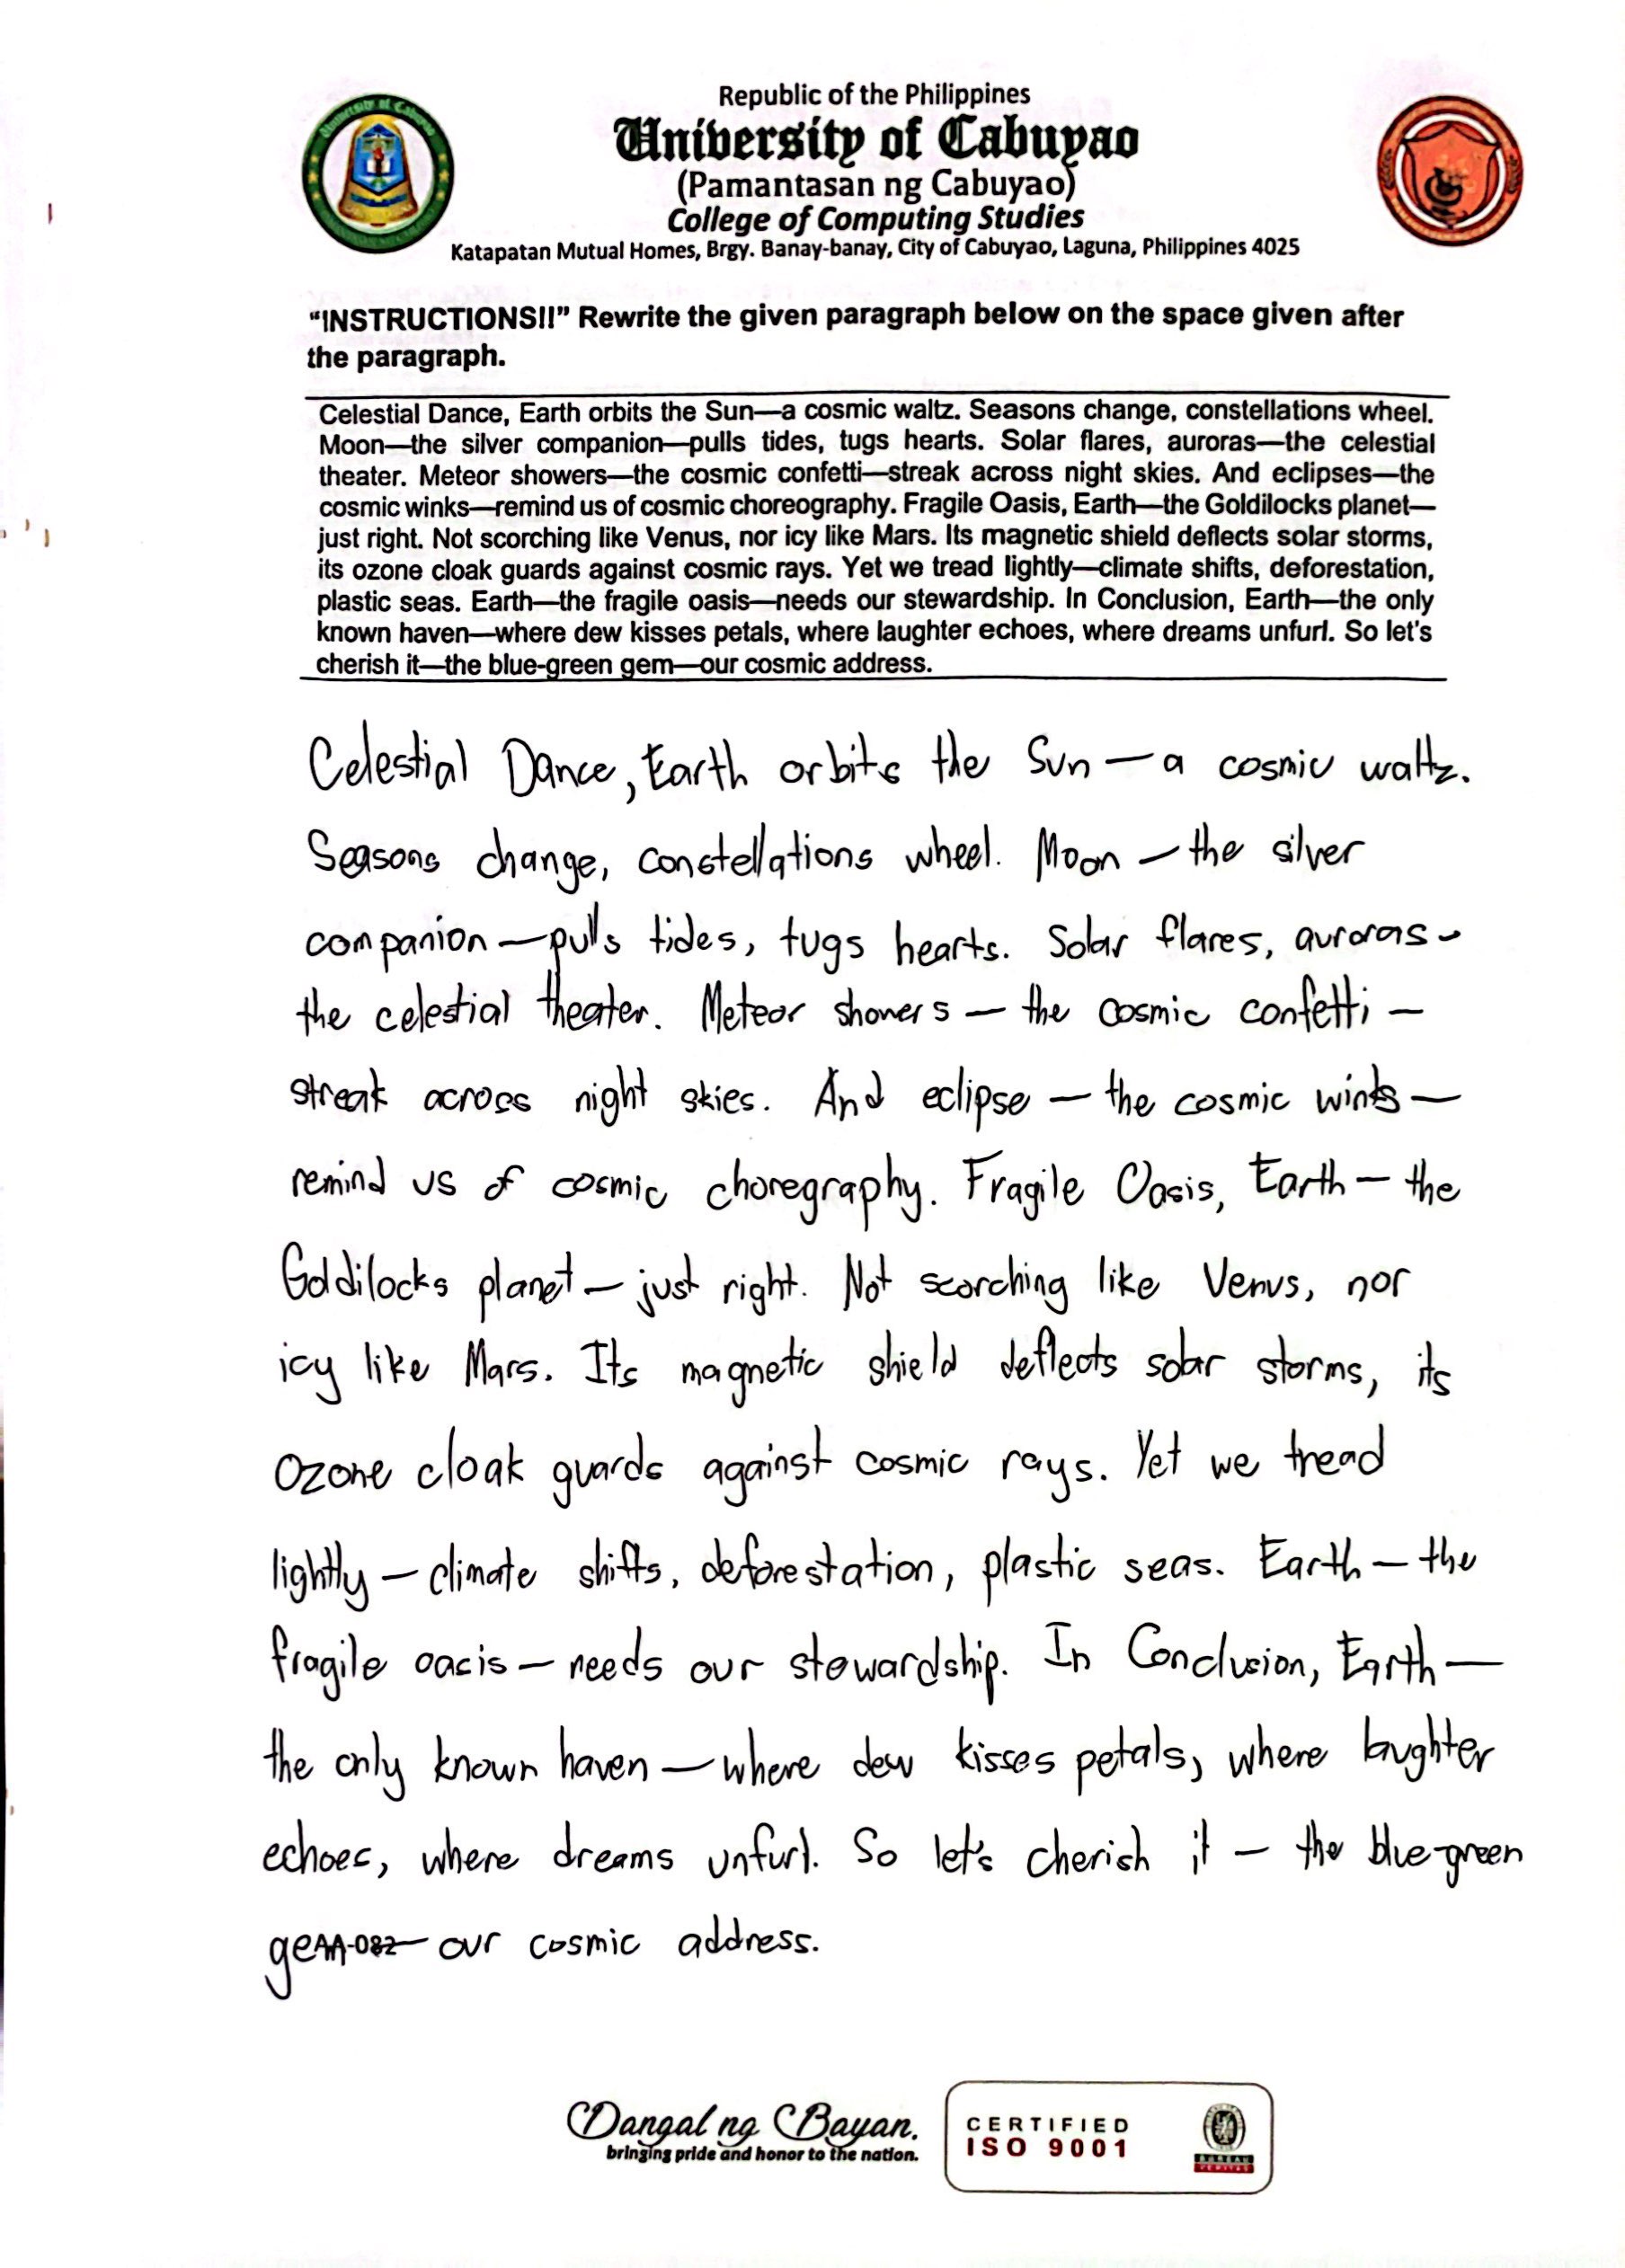 Republic of the Philippines
University of Cabuyao
(Pamantasan ng Cabuyao)
College of Computing Studies
Katapatan Mutual Homes, Brgy. Banay-banay, City of Cabuyao, Laguna, Philippines 4025
"INSTRUCTIONS!!" Rewrite the given paragraph below on the space given after
the paragraph.
Celestial Dance, Earth orbits the Sun—a cosmic waltz. Seasons change, constellations wheel.
Moon—the silver companion—pulls tides, tugs hearts. Solar flares, auroras—the celestial
theater. Meteor showers—the cosmic confetti—streak across night skies. And eclipses—the
cosmic winks—remind us of cosmic choreography. Fragile Oasis, Earth—the Goldilocks planet—
just right. Not scorching like Venus, nor icy like Mars. Its magnetic shield deflects solar storms,
its ozone cloak guards against cosmic rays. Yet we tread lightly—climate shifts, deforestation,
plastic seas. Earth—the fragile oasis—needs our stewardship. In Conclusion, Earth—the only
known haven—where dew kisses petals, where laughter echoes, where dreams unfurl. So let's
cherish it—the blue-green gem—our cosmic address.
Celestial Dance, Earth orbits the Sun — a cosmic waltz.
Seasons change, constellations wheel. Moon — the silver
companion — pulls tides, tugs hearts. Solar flares, auroras -
the celestial theater. Meteor showers — the cosmic confetti —
streak across night skies. And eclipse — the cosmic winks —
remind us of cosmic choregraphy. Fragile Oasis, Earth — the
Goldilocks planet — just right. Not scorching like Venus, nor
icy like Mars. Its magnetic shield deflects solar storms, its
ozone cloak guards against cosmic rays. Yet we tread
lightly — climate shifts, deforestation, plastic seas. Earth — the
fragile oasis — needs our stewardship. In Conclusion, Earth —
the only known haven — where dew kisses petals, where laughter
echoes, where dreams unfurl. So let's cherish it — the blue-green
gem — our cosmic address.
Dangal ng Bayan.
bringing pride and honor to the nation.
CERTIFIED
ISO 9001
BUREAU
VERITAS